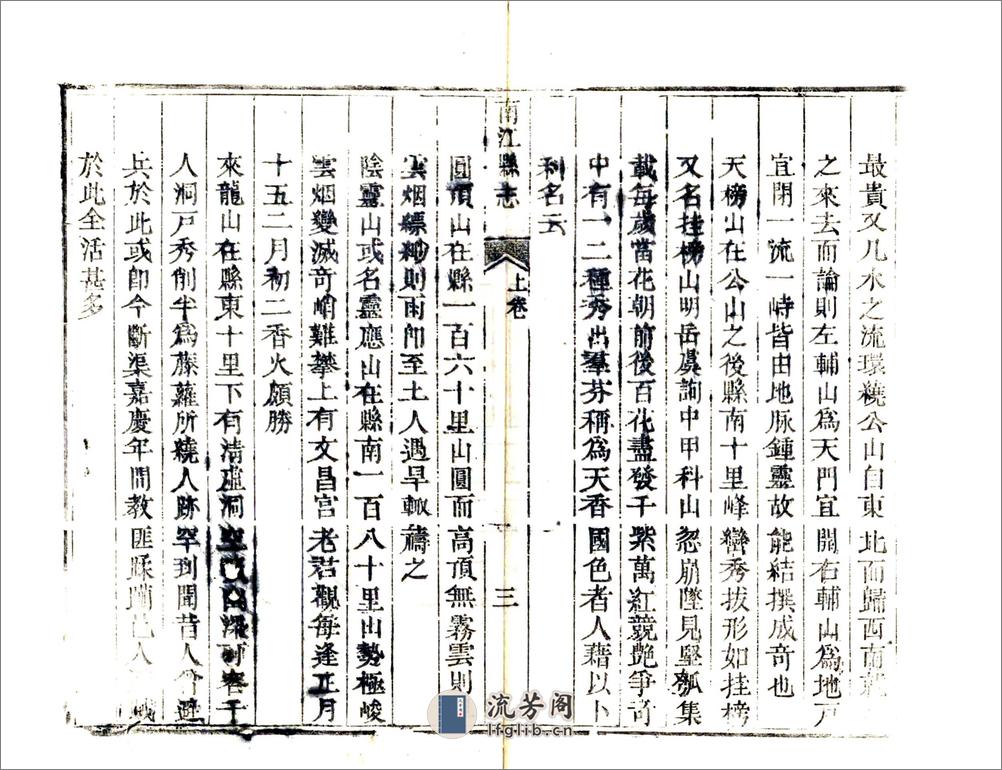 最貴又凡水之流環繞公山自東北而歸西南就
之來去而論則左輔山為天門宜開右輔山為地戸
宜閉一流一峙皆由地脉鍾靈故能結撰成奇也
天榜山在公山之後縣南十里峰巒秀拔形如挂榜
又名挂榜山明岳虞詢中甲科山忽崩墜見壁瓠集
載每歲當花朝前後百花盡發千紫萬紅競艷爭奇
中有一二種秀出羣芬稱為天香國色者人藉以卜
科名云
南江縣志
上卷
三
圓頂山在縣一百六十里山圓而高頂無霧雲則
雲烟縹緲則雨卽至土人遇旱輙禱之
陰靈山或名靈應山在縣南一百八十里山勢極峻
雲烟變滅奇峭難攀上有文昌宮老君觀每逢正月
十五二月初二香火頗勝
來龍山在縣東十里下有清虛洞空深可容千
人洞戸秀削半為藤蘿所繞人跡罕到聞昔人曾避
兵於此或卽今斷渠嘉慶年間教匪蹂躪邑人
於此全活甚多
流芳阁
lfglib.cn